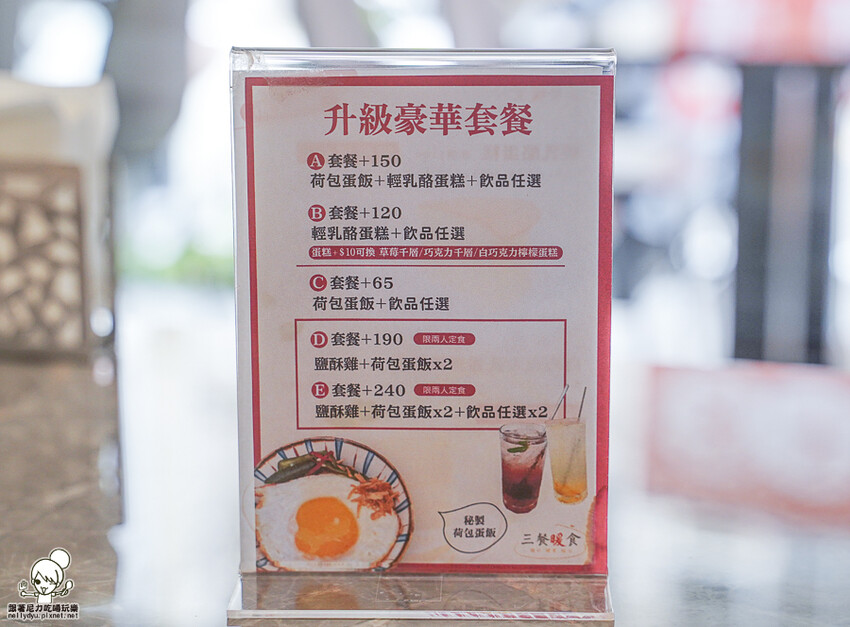 升級豪華套餐
A 套餐+150
荷包蛋飯+輕乳酪蛋糕+飲品任選
B 套餐+120
輕乳酪蛋糕+飲品任選
蛋糕+$10可換 草莓千層/巧克力千層/白巧克力檸檬蛋糕
C 套餐+65
荷包蛋飯+飲品任選
D 套餐+190 限兩人定食
鹽酥雞+荷包蛋飯x2
E 套餐+240 限兩人定食
鹽酥雞+荷包蛋飯x2+飲品任選x2
秘製
荷包蛋飯
三餐暖食
跟著尼力吃喝玩樂
nellydyu.pixnet.net